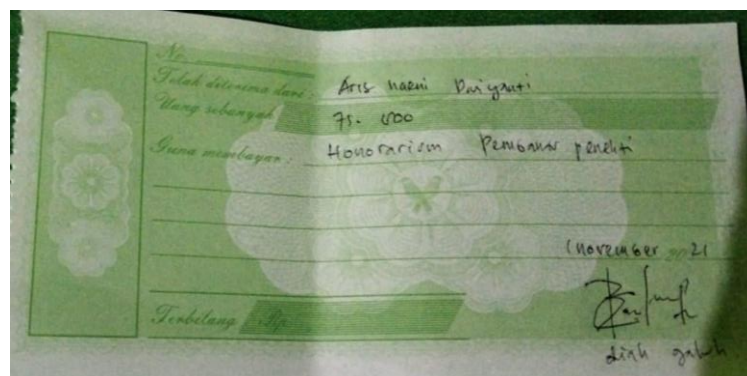 No.
Telah diterima dari : Aris haeni Dariyanti
Uang sebanyak 75.000
Guna membayar : Honorarium Pembantu peneliti
1 november 2021
Terbilang Rp.
diah galuh